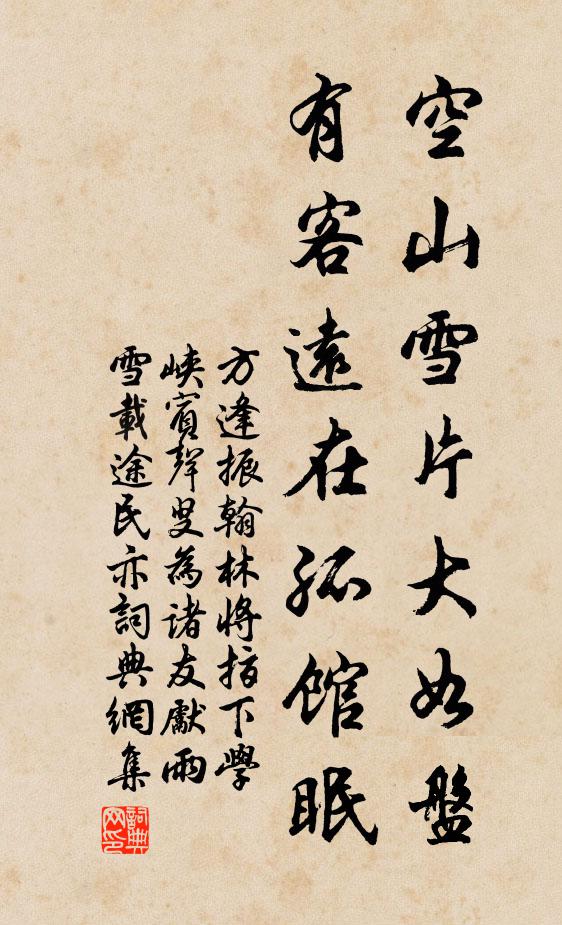 空山雪片大如盤
有客遠在孤館眠
方逢振翰林將指下學
峽賓聲叟為諸友獻雨
雪載途民亦詞典網集
詞典
网印